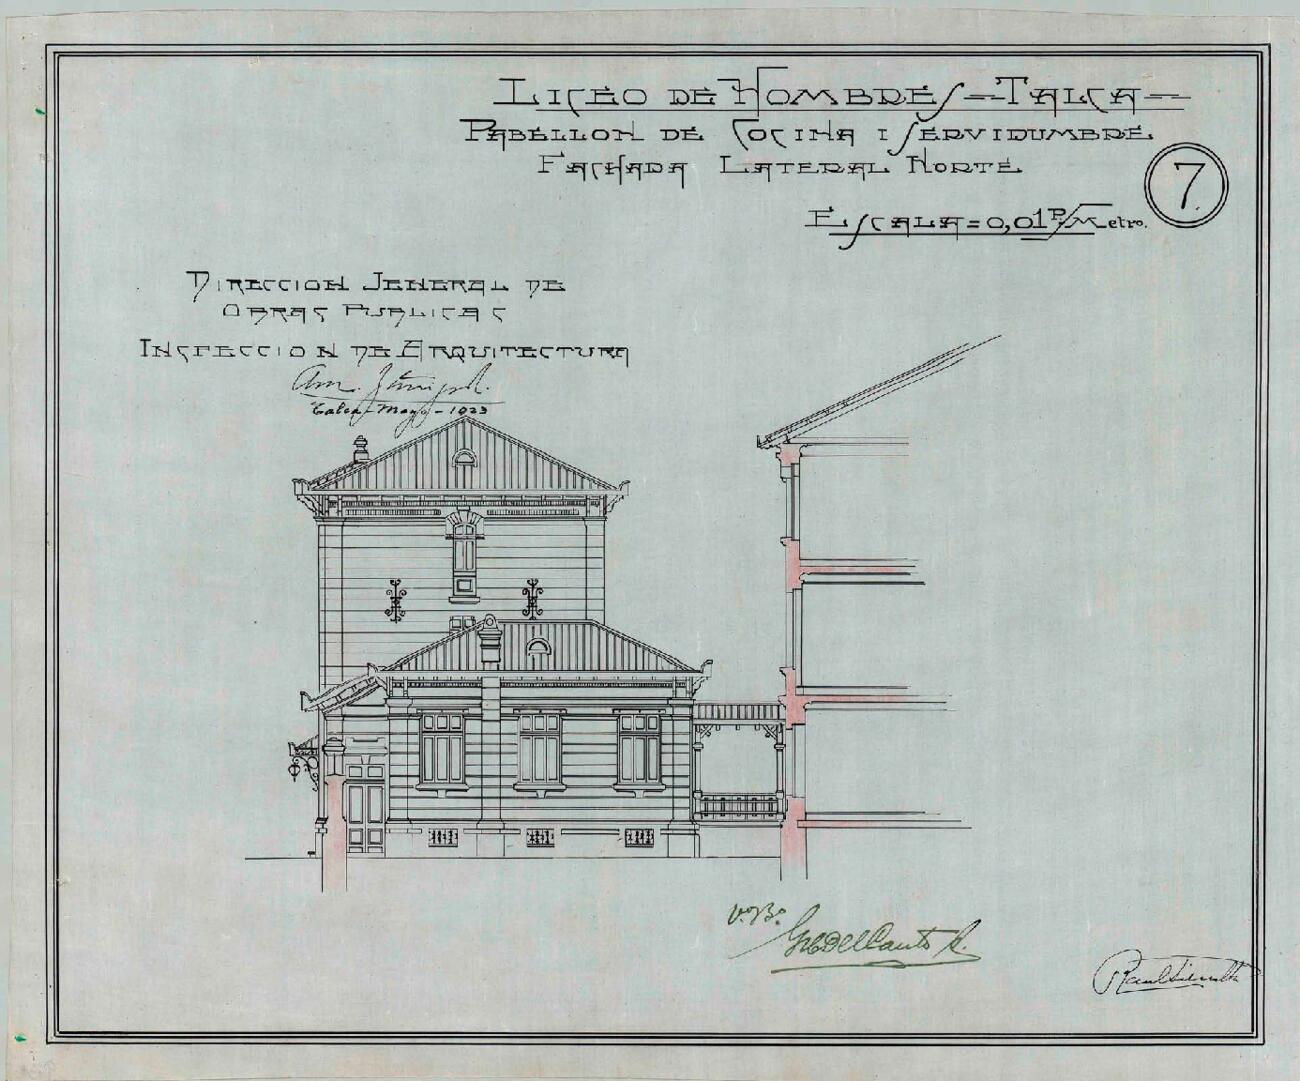 LICEO DE HOMBRES = TALCA =
PABELLON DE COCINA I SERVIDUMBRE
FACHADA LATERAL NORTE
7.
ESCALA = 0,01 P/Metro.
DIRECCION JENERAL DE
OBRAS PUBLICAS
INSPECCION DE ARQUITECTURA
Talca - Mayo - 1923
V.º B.º